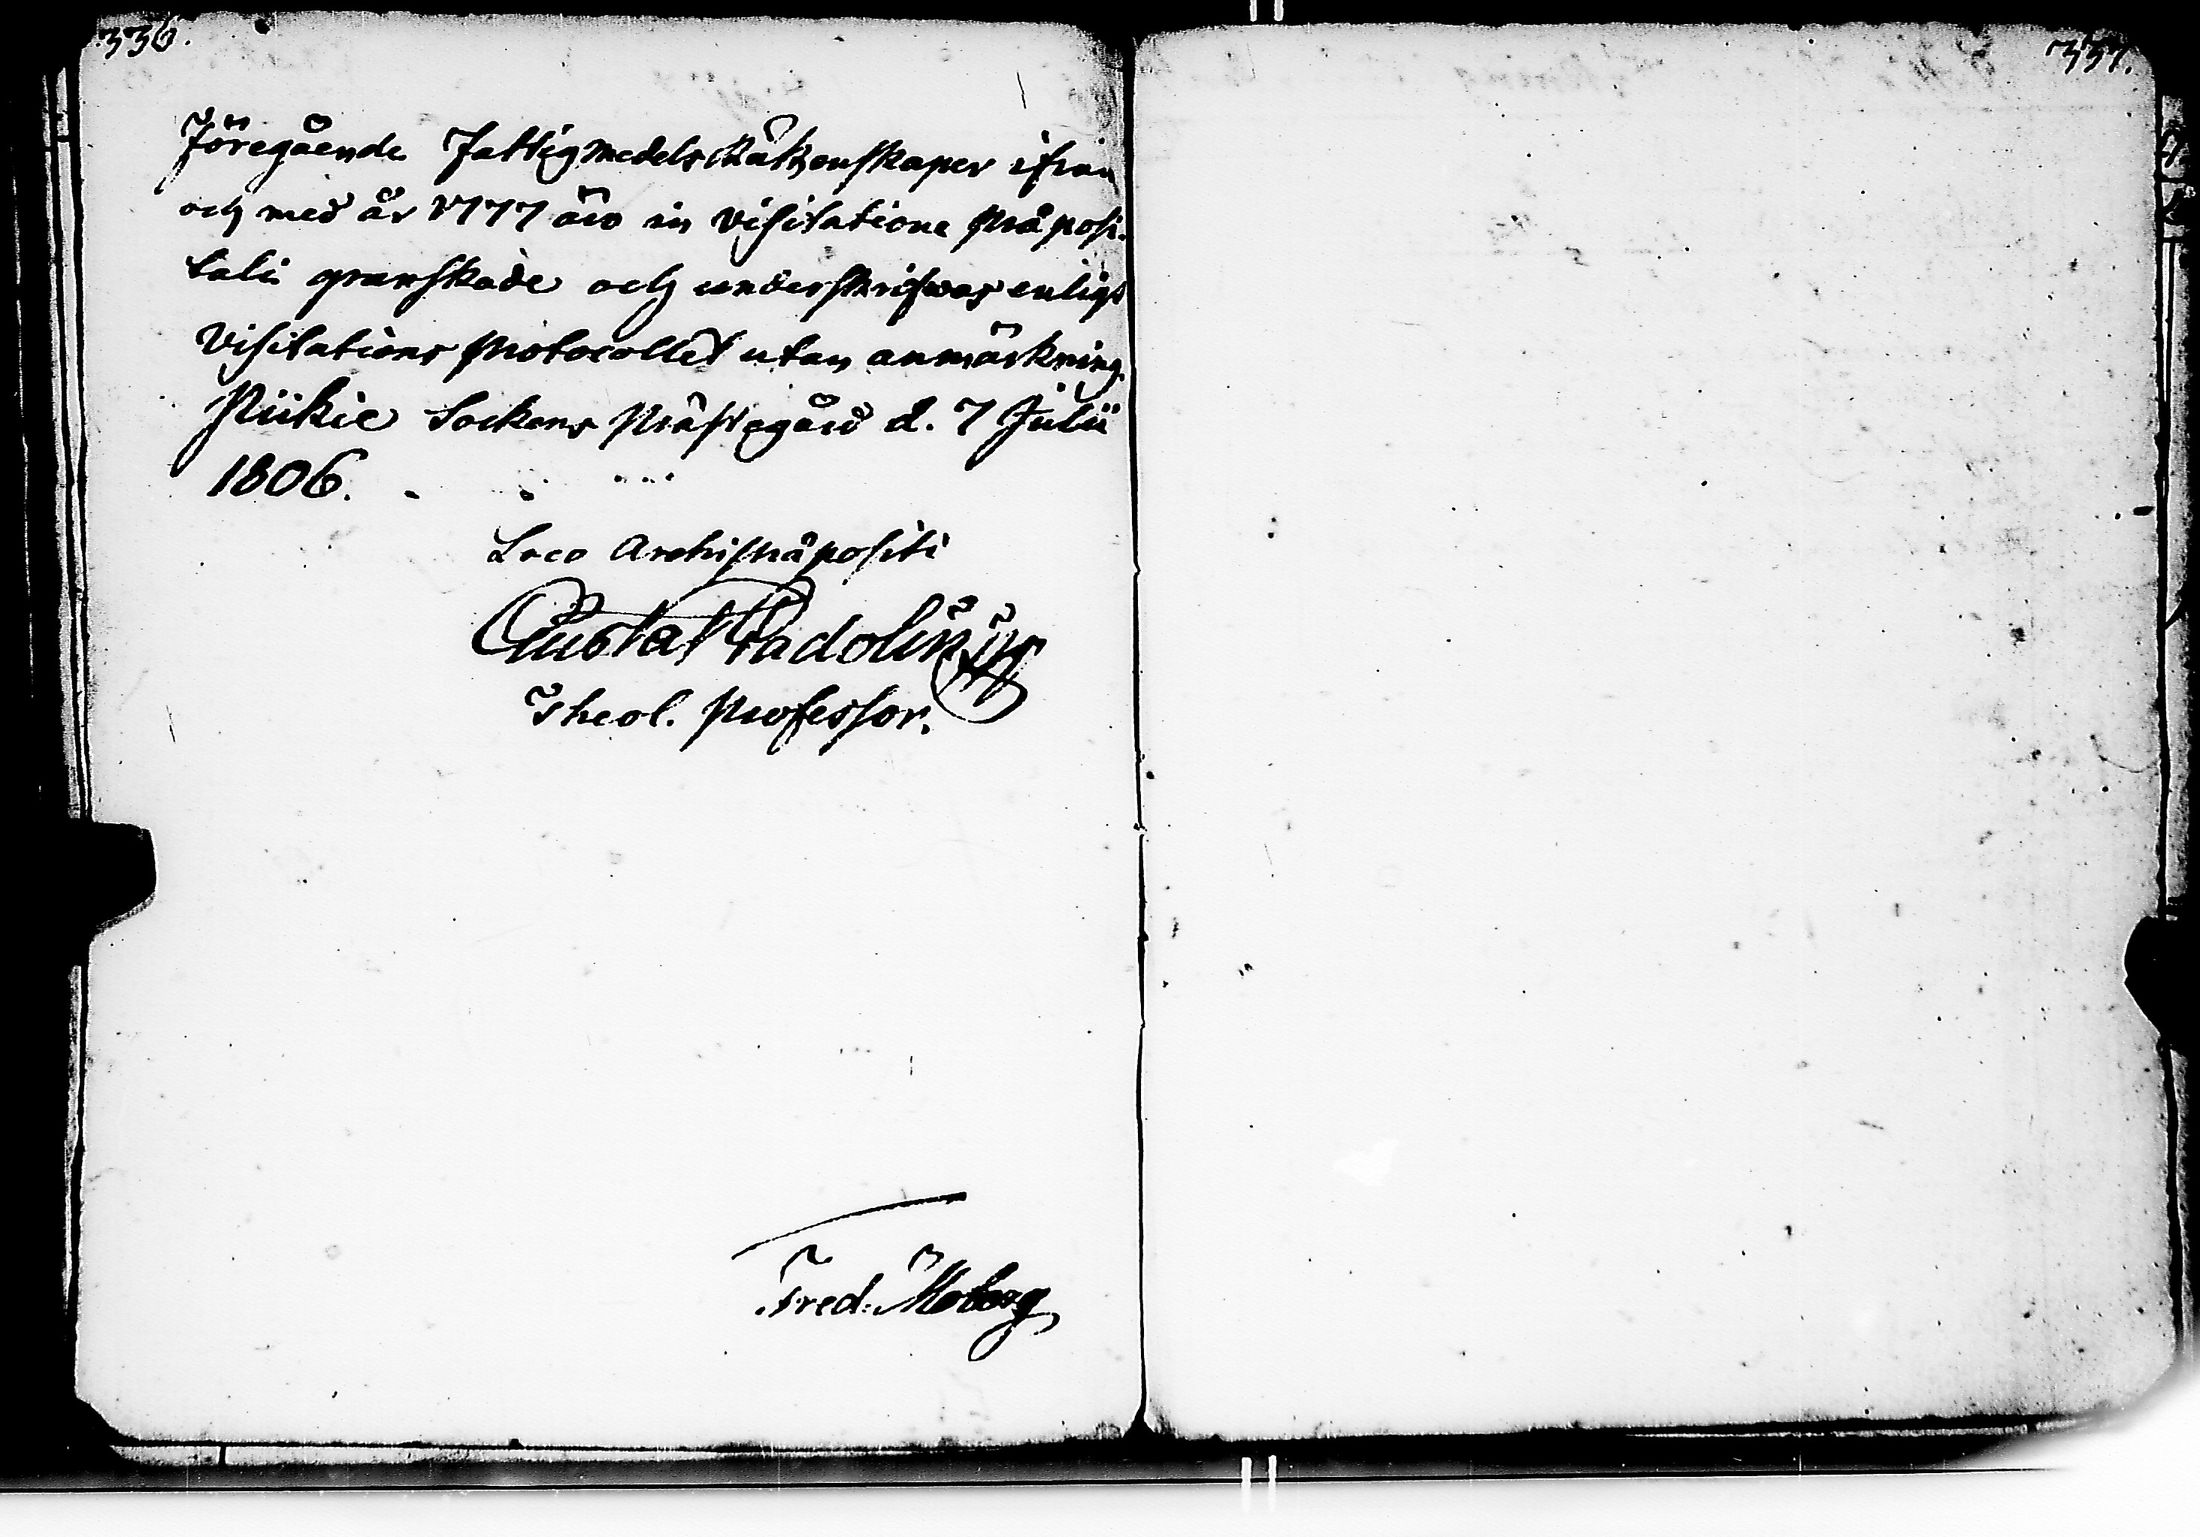 336.
Föregående Fattigmedels Räkenskaper ifrån
och med år 1777 äro in Visitatione Præposi-
tali granskade och underskrifwas enligt
Visitations Protocollet utan anmärkning.
Piikie Sockens Prästegård d. 7 Julii
1806.
Loco Archipræpositi
Gustaf Gadolin
Theol. Professor.
Fred. Moberg
337.